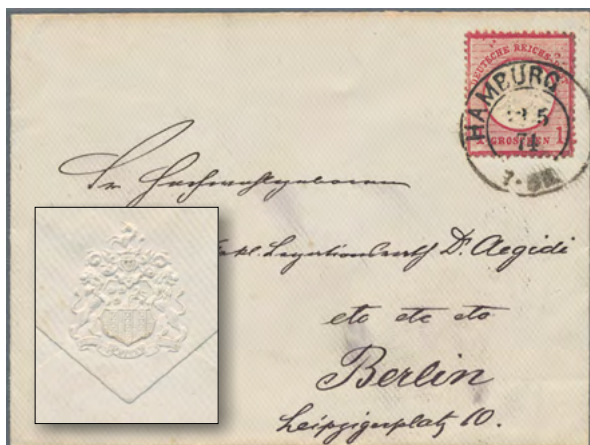 DEUTSCHE REICHS-POST
HAMBURG
5
74
1 GROSCHEN 1
Sr Hochwohlgeboren
Legationsrath Dr. Aegidi
etc etc etc
Berlin
Leipzigerplatz 10.